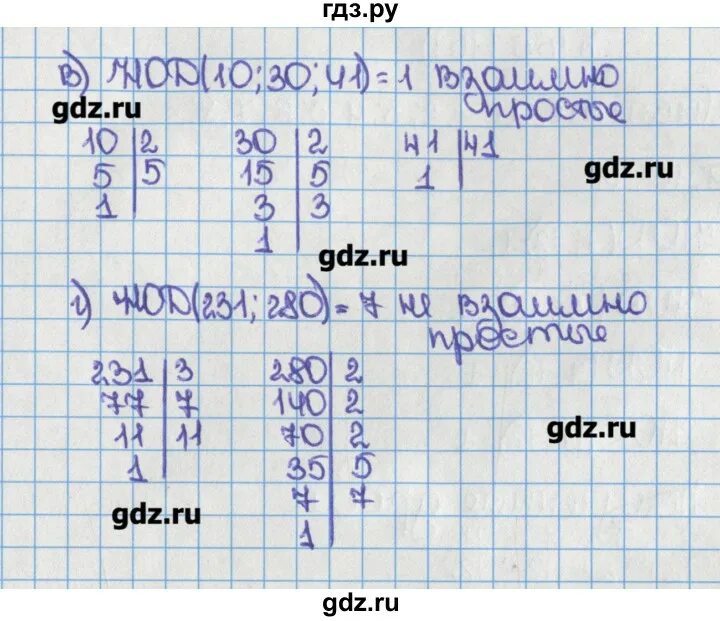 гдз.ру
в) НОД(10;30;41)=1 взаимно
простые
gdz.ru
10 | 2 30 | 2 41 | 41
5 | 5 15 | 5 1 |
1 | 3 | 3
1
gdz.ru
gdz.ru
г) НОД(231; 280)= 7 не взаимно
простые
231 | 3 280 | 2
77 | 7 140 | 2
11 | 11 70 | 2
1 | 35 | 5
7 | 7
1 |
gdz.ru
gdz.ru
gdz.ru